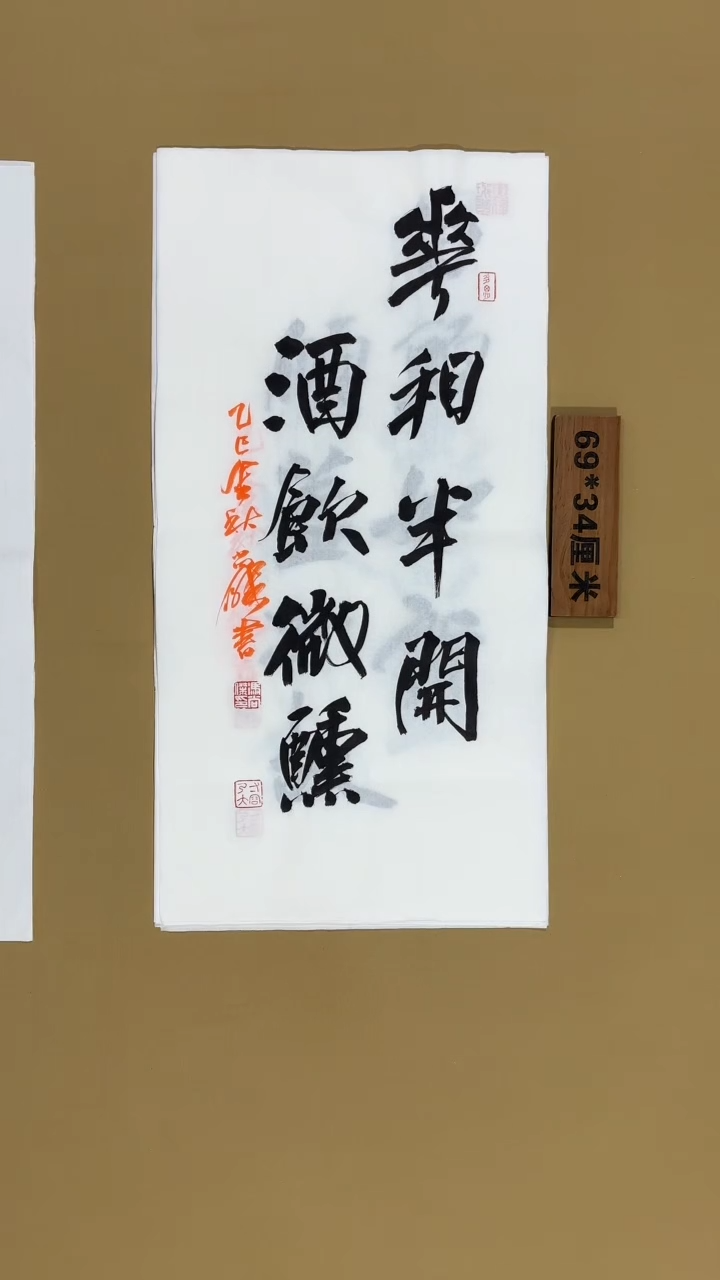 華看半開
酒飲微醺
乙巳金秋 書
69*34厘米